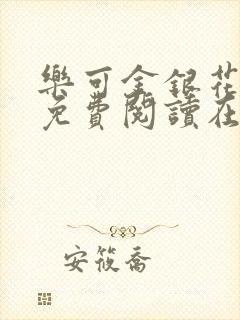 樂可金銀花
免費閱讀在
安筱喬